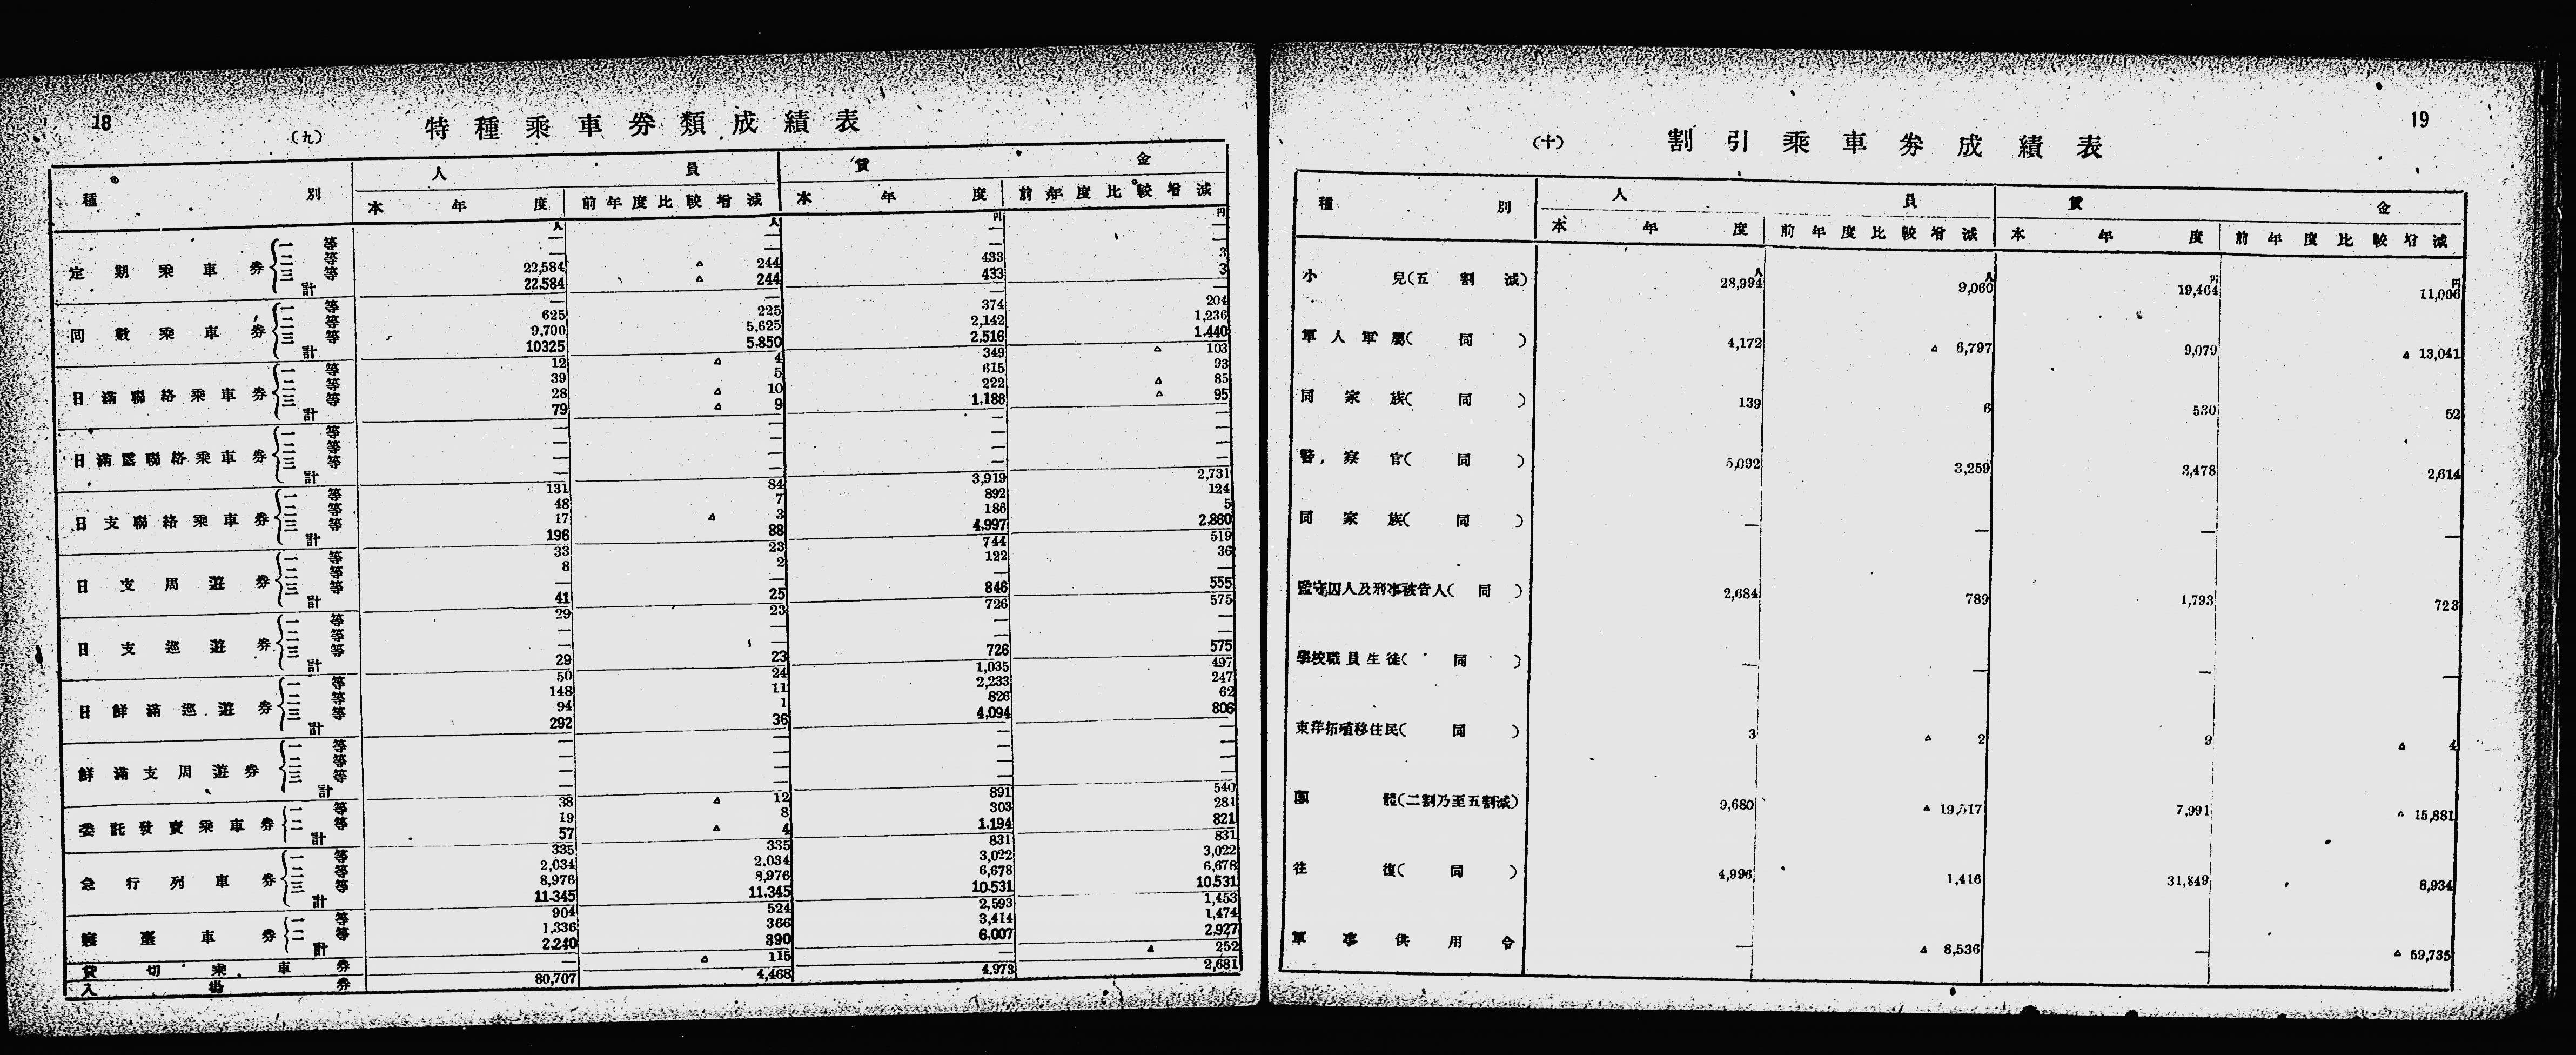 18
(九) 特種乘車券類成績表
種別 人員 賃金
本年度 前年度比較增減 本年度 前年度比較增減
人 人 円 円
定期乘車券 一等 — — — —
二等 — — — —
三等 22,584 △ 244 433 3
計 22,584 △ 244 433 3
回數乘車券 一等 — — — —
二等 625 225 374 204
三等 9,700 5,625 2,142 1,236
計 10325 5,850 2,516 1,440
日滿聯絡乘車券 一等 12 △ 4 349 △ 103
二等 39 5 615 93
三等 28 △ 10 222 △ 85
計 79 △ 9 1,186 △ 95
日滿露聯絡乘車券 一等 — — — —
二等 — — — —
三等 — — — —
計 — — — —
日支聯絡乘車券 一等 131 84 3,919 2,731
二等 48 7 892 124
三等 17 △ 3 186 5
計 196 88 4,997 2,860
日支周遊券 一等 33 23 744 519
二等 8 2 122 36
三等 — — — —
計 41 25 846 555
日支巡遊券 一等 29 23 726 575
二等 — — — —
三等 — — — —
計 29 23 726 575
日鮮滿巡遊券 一等 50 24 1,035 497
二等 148 11 2,233 247
三等 94 1 826 62
計 292 36 4,094 806
鮮滿支周遊券 一等 — — — —
二等 — — — —
三等 — — — —
計 — — — —
委託發賣乘車券 一等 38 △ 12 891 540
二等 19 8 303 281
計 57 △ 4 1,194 821
急行列車券 一等 335 335 831 831
二等 2,034 2,034 3,022 3,022
三等 8,976 8,976 6,678 6,678
計 11,345 11,345 10,531 10,531
寢臺車券 一等 904 524 2,593 1,453
二等 1,336 366 3,414 1,474
計 2,240 890 6,007 2,927
貸切乘車券 — △ 115 — △ 252
入場券 80,707 4,468 4,973 2,681
19
(十) 割引乘車券成績表
種別 人員 賃金
本年度 前年度比較增減 本年度 前年度比較增減
人 人 円 円
小兒(五割減) 28,994 9,060 19,464 11,006
軍人軍屬(同) 4,172 △ 6,797 9,079 △ 13,041
同家族(同) 139 6 530 52
警察官(同) 5,092 3,259 3,478 2,614
同家族(同) — — — —
監守囚人及刑事被告人(同) 2,684 789 1,793 723
學校職員生徒(同) — — — —
東洋拓殖移住民(同) 3 △ 2 9 △ 4
團體(二割乃至五割減) 9,680 △ 19,517 7,991 △ 15,881
往復(同) 4,996 1,416 31,849 8,934
軍事供用令 — △ 8,536 — △ 59,735